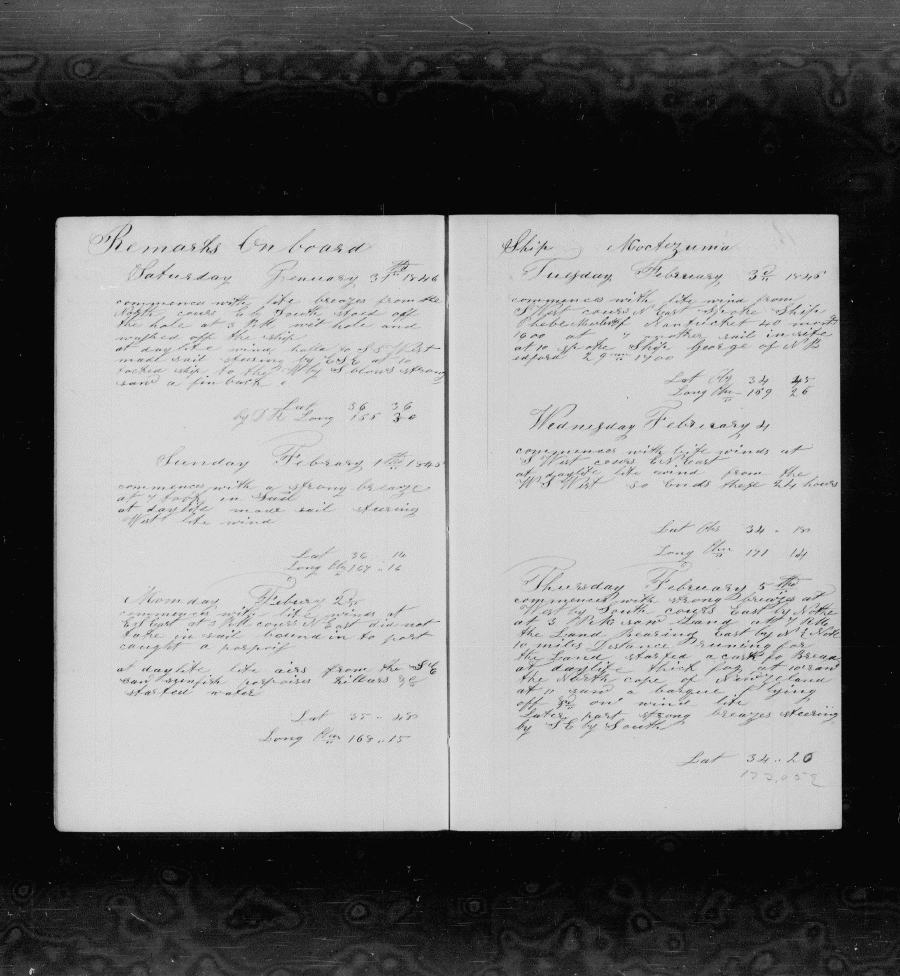 Remarks On board
Saturday Jenuary 31th 1846
commences with lite breazes from the
North cours E by South stood off
the hole at 3 P M wit hole and
walked off the ship
at daylite wind holla to S S West
made sail stearing by ESE at 10
tacked ship to the W by S blows strong
saw a fin back
Lat 36 36
by D R Long 165 30
Sunday February 1th 1845
commences with a strong breaze
at 7 took in sail
at daylite made sail stearing
West lite wind
Lat 36 16
Long Obs 167 .. 16
Monday Febury 2d
commences with lite winds at
East at 3 P M cours N East did not
take in sail bound in to port
caught a porpois
at daylite lite airs from the S E
saw sunfish porpoises Killars &c
started water
Lat 35 .. 48
Long 168 .. 15
Ship Moctezuma
Tuesday February 3d 1845
commences with lite wind from
S West cours N East spoke Ship
Phebe of Nantucket 40 months
1900 at 7 another sail in site
at 10 spoke Ship George of N B
edford 29 m 1900
Lat Obs 34 45
Long 169 26
Wednesday February 4
commences with lite winds at
S West cours East
at daylite lite wind from the
W S West so ends these 24 hours
Lat Obs 34 .. 18
Long 171 14
Thursday February 5th
commences with strong breazes at
West by South cours East by Nothe
at 3 P M saw Land at 7 P M
the Land bearing East by N 1/2 Nothe
10 miles Distance runing for
the Land started a cask to Bread
at daylite thick fog at 10 saw
the North cape of Newzeeland
at 11 saw a barque lying
off & on wind lite
Later part strong breazes stearing
by S E by South
Lat 34 .. 26